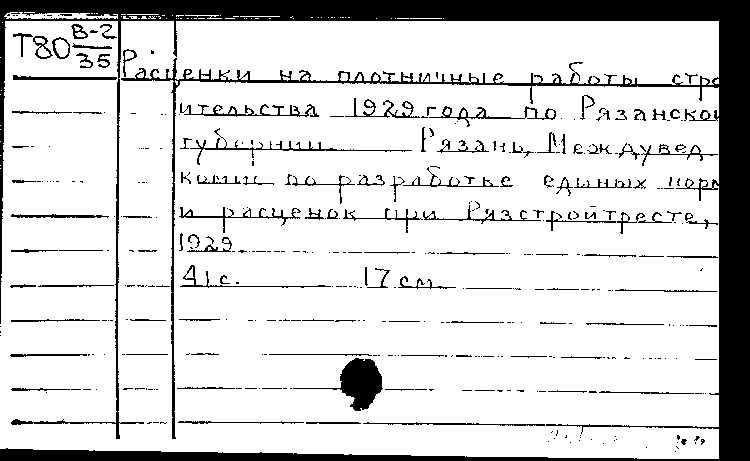 Т80 В-2
35
Расценки на плотничные работы стро
ительства 1929 года по Рязанской
губернии. Рязань, Междувед.
комис по разработке единых норм
и расценок при Рязстройтресте,
1929.
41 с. 17 см.